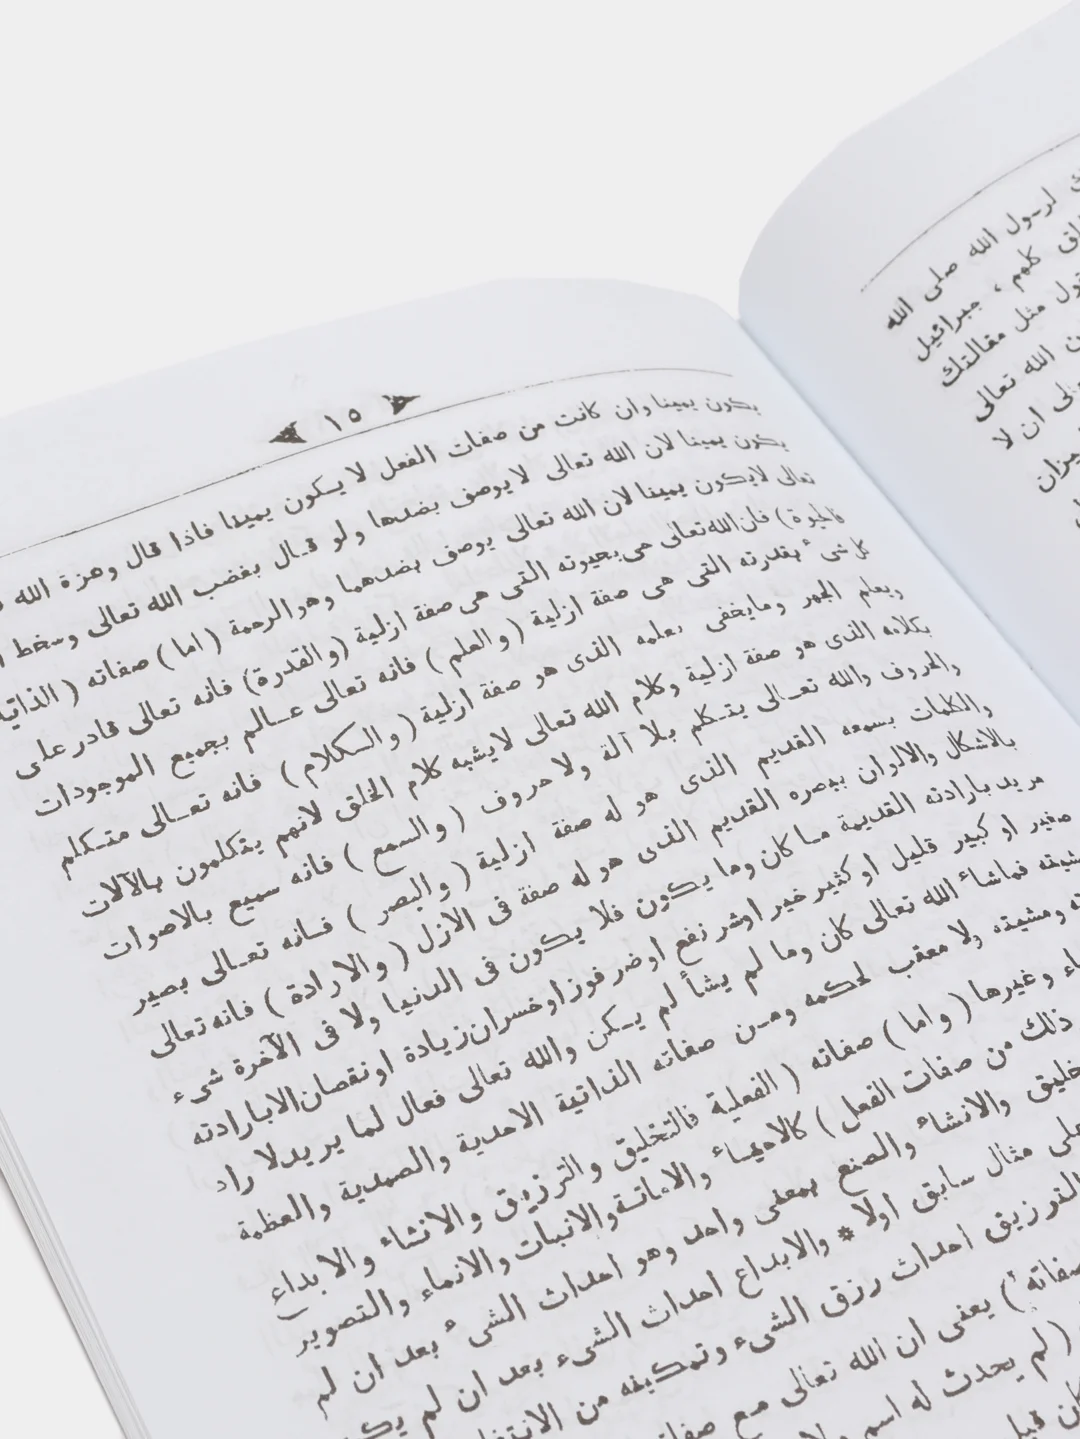 ١٥
يكون يمينا وان كانت من صفات الفعل لا يكون يمينا فاذا قال وعزة الله
يكون يمينا لان الله تعالى لا يوصف بضدها ولو قال بغضب الله تعالى وسخط
تعالى لايكون يمينا لان الله تعالى يوصف بضدهما وهو الرحمة ( اما ) صفاته ( الذاتية
فالحيوة ) فان الله تعالى حى بحيوته التى هى صفة ازلية ( والقدرة ) فانه تعالى قادر على
كل شىء بقدرته التى هى صفة ازلية ( والعلم ) فانه تعالى عالم بجميع الموجودات
ويعلم الجهر وما يخفى بعلمه الذى هو صفة ازلية ( والكلام ) فانه تعالى متكلم
بكلامه الذى هو صفة ازلية وكلام الله تعالى لايشبه كلام الخلق لانهم يتكلمون بالآلات
والحروف والله تعالى يتكلم بلا آلة ولا حروف ( والسمع ) فانه سميع بالاصوات
والكلمات بسمعه القديم الذى هو له صفة ازلية ( والبصر ) فانه تعالى بصير
بالاشكال والالوان ببصره القديم الذى هو له صفة فى الازل ( والارادة ) فانه تعالى
مريد بارادته القديمة ما كان وما يكون فلا يكون فى الدنيا ولا فى الآخرة شىء
صغير او كبير قليل او كثير خير او شر نفع او ضر فوز او خسران زيادة او نقصان الا بارادته
فماشاء الله تعالى كان وما لم يشأ لم يكن والله تعالى فعال لما يريد لا راد
ومشيته ولا معقب لحكمه ومن صفاته الذاتية الاحدية والصمدية والعظمة
وغيرها ( واما ) صفاته ( الفعلية فالتخليق والترزيق والانشاء والابداع
ذلك من صفات الفعل ) كالاحياء والاماتة والانبات والانماء والتصوير
والانشاء والصنع بمعنى واحد وهو احداث الشىء بعد ان لم
على مثال سابق اولا * والابداع احداث الشىء بعد ان لم
الترزيق احداث رزق الشىء وتمكينه من
) يعنى ان الله تعالى مع
( لم يحدث له اسم
الله
لرسول الله صلى الله
كلهم ، جبرائيل
مثل مقالتك
الله تعالى
ان لا